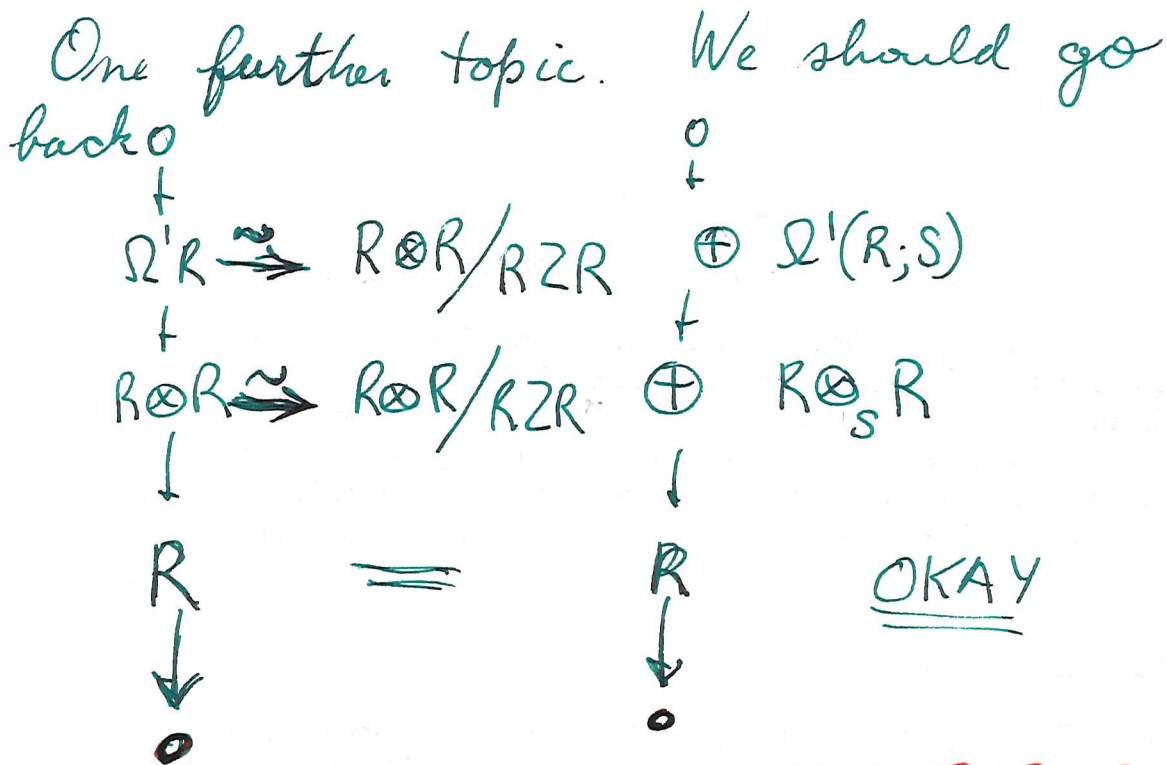 One further topic. We should go
back 0 0
↓ ↓
Ω'R ⥲ R⊗R/RZR ⊕ Ω'(R;S)
↓ ↓
R⊗R ⥲ R⊗R/RZR ⊕ R⊗_S R
↓ ↓
R = R OKAY
↓ ↓
0 0